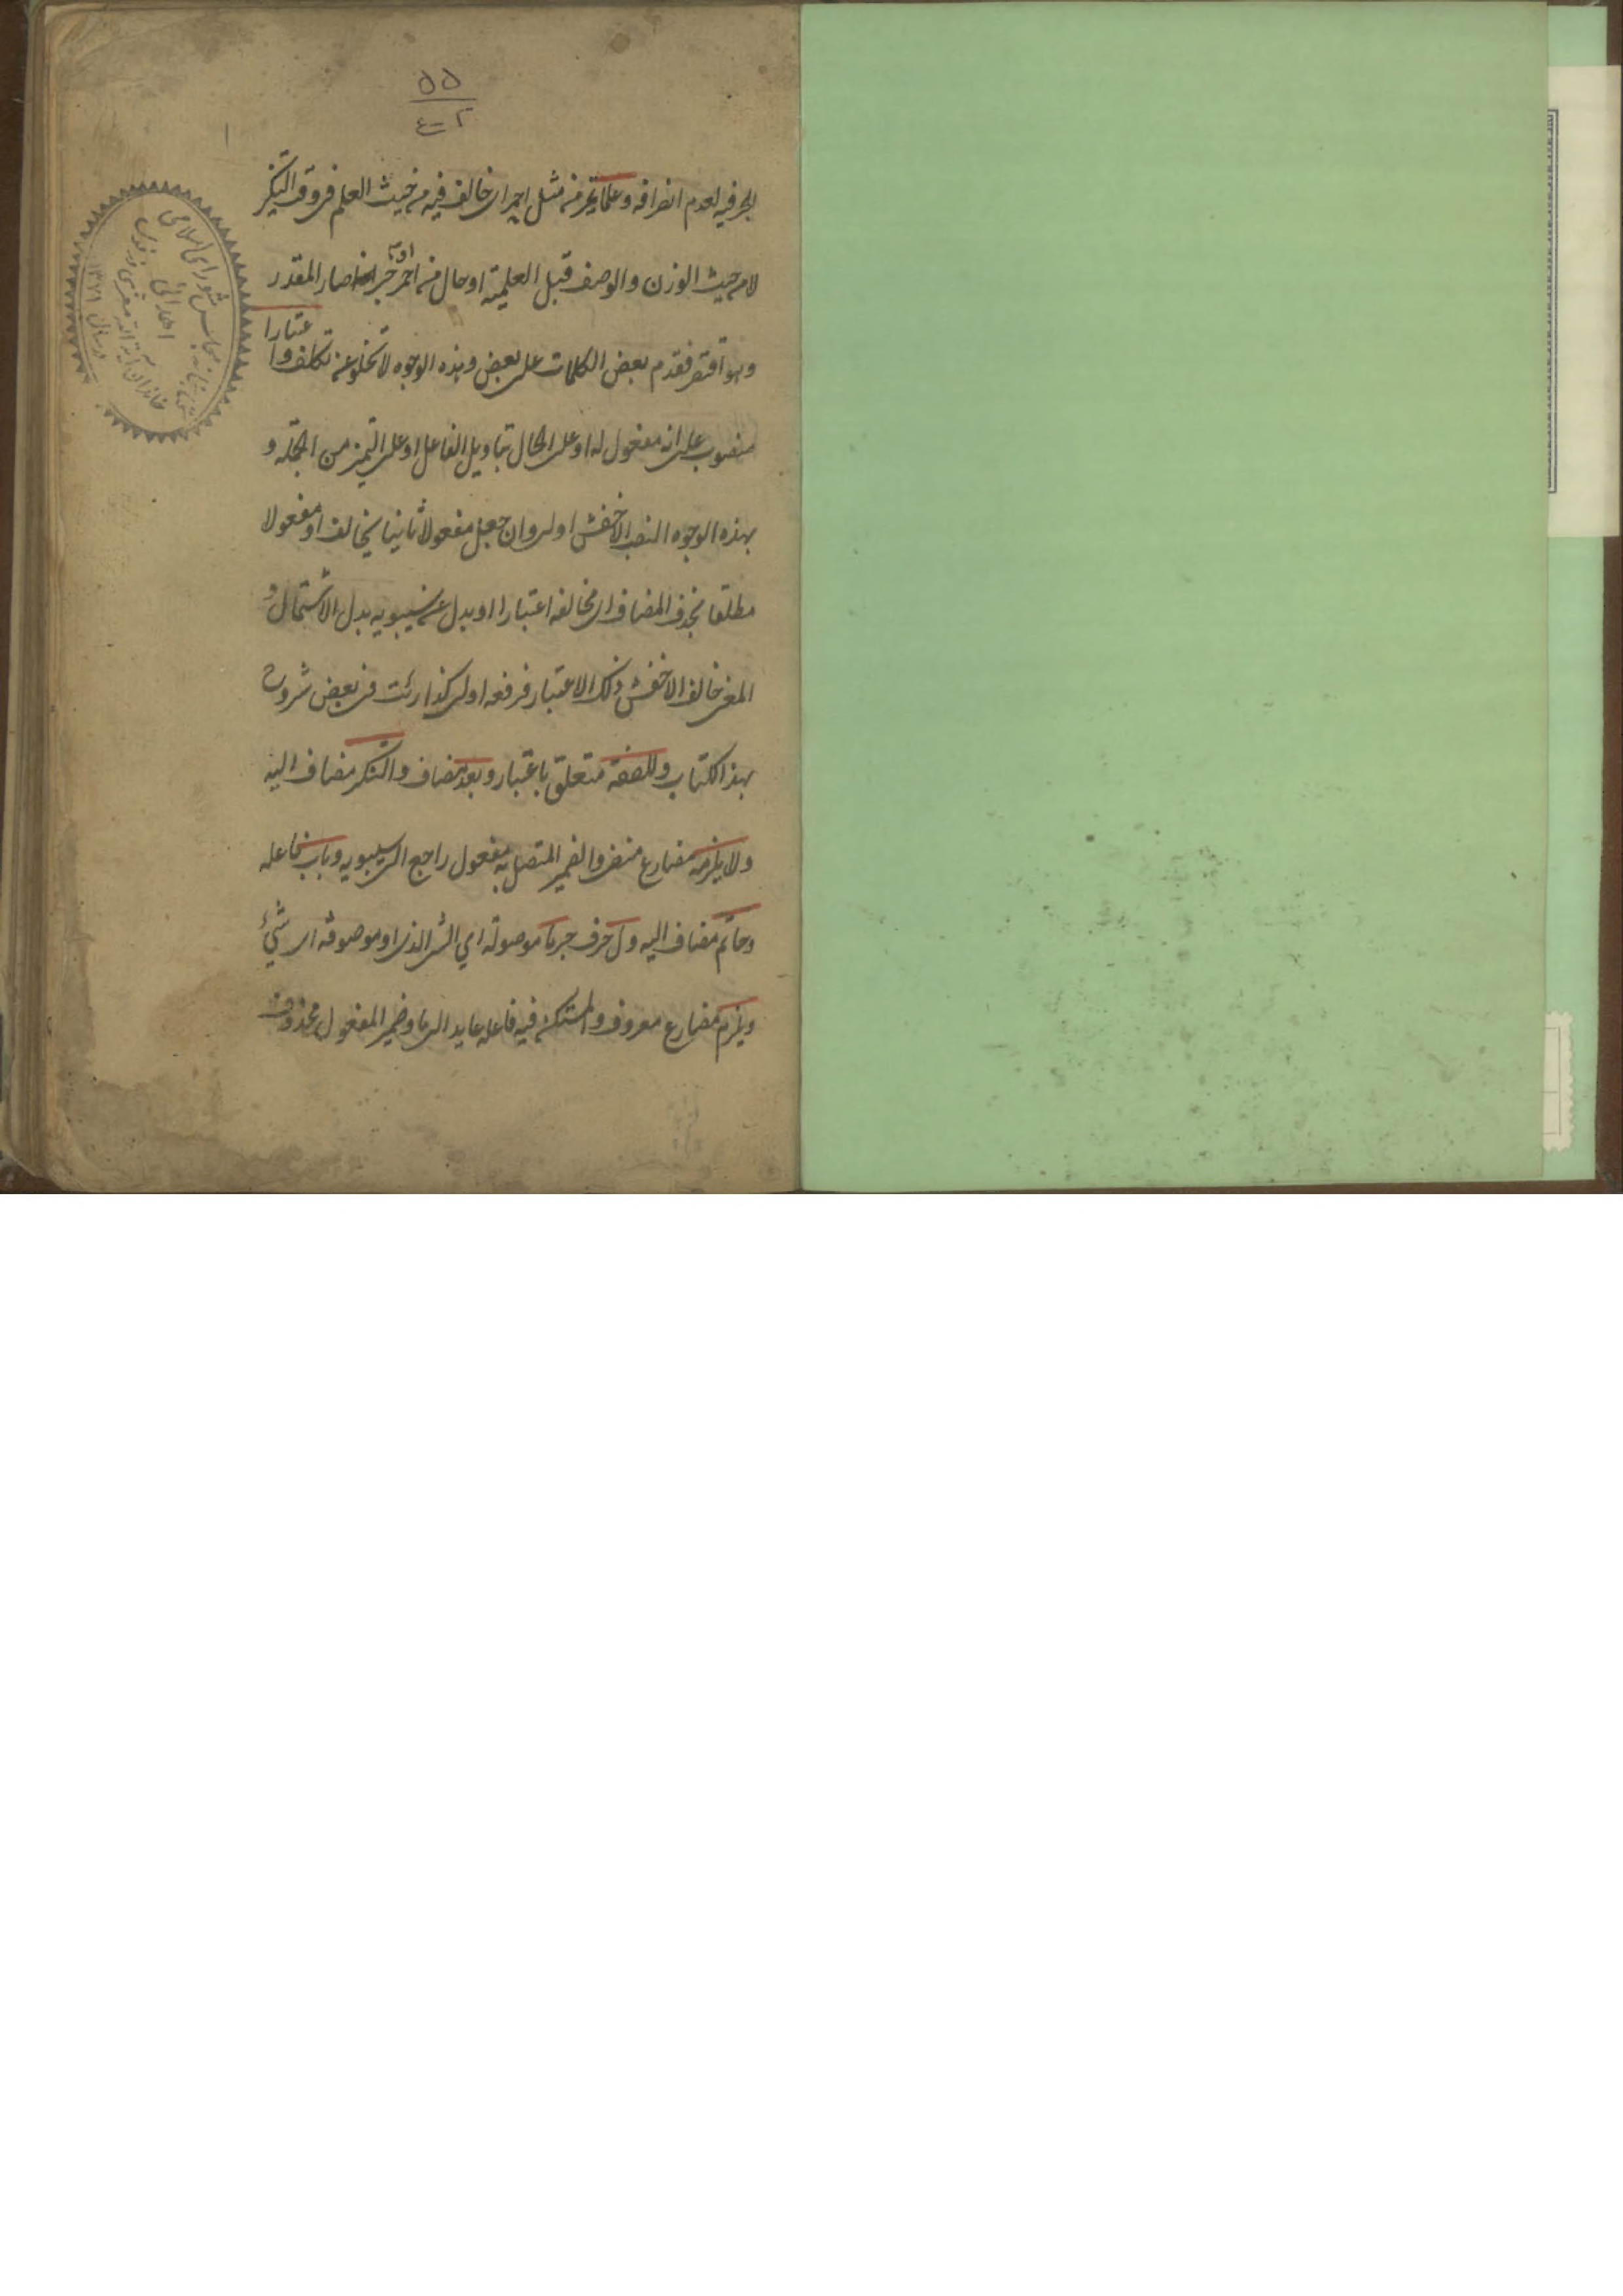 ٥٥
١
الجر فيه لعدم انصرافه وعلما تميز من مثل احمر اى خالف فيه من حيث العلم فى وقت التنكير
لا من حيث الوزن والوصف قبل العلمية او حال من احمر او خبر صار المقدر
وهو آ فقدم بعض الكلمات على بعض وهذه الوجوه لا تخلو عن تكلف واعتبارا
منصوب على انه مفعول له او على الحال بتاويل الفاعل او على التميز من الجملة و
بهذه الوجوه النصب الاخفش اولى وان جعل مفعولا ثانيا يخالف او مفعولا
مطلقا بحذف المضاف اى مخالفه اعتبارا او بدل عن سيبويه بدل الاشتمال و
المعنى خالف الاخفش ذلك الاعتبار فرفعه اولى كذا رئت فى بعض شروح
هذا الكتاب وللصفة متعلق باعتبار وبعد مضاف والتنكير مضاف اليه
ولا يلزمه مضارع منفى والضمير المتصل به مفعول راجع الى سيبويه وباب فاعله
وحاتم مضاف اليه ول حرف جر ما موصولة اي الشى الذى او موصوفة اى شيء
ويلزم مضارع معروف والمستكن فيه فاعله عايد الى ما وضمير المفعول محذوف
مجلس شورای اسلامی
اهدائی
خاندان آیة الله
در سال ١٣٧١